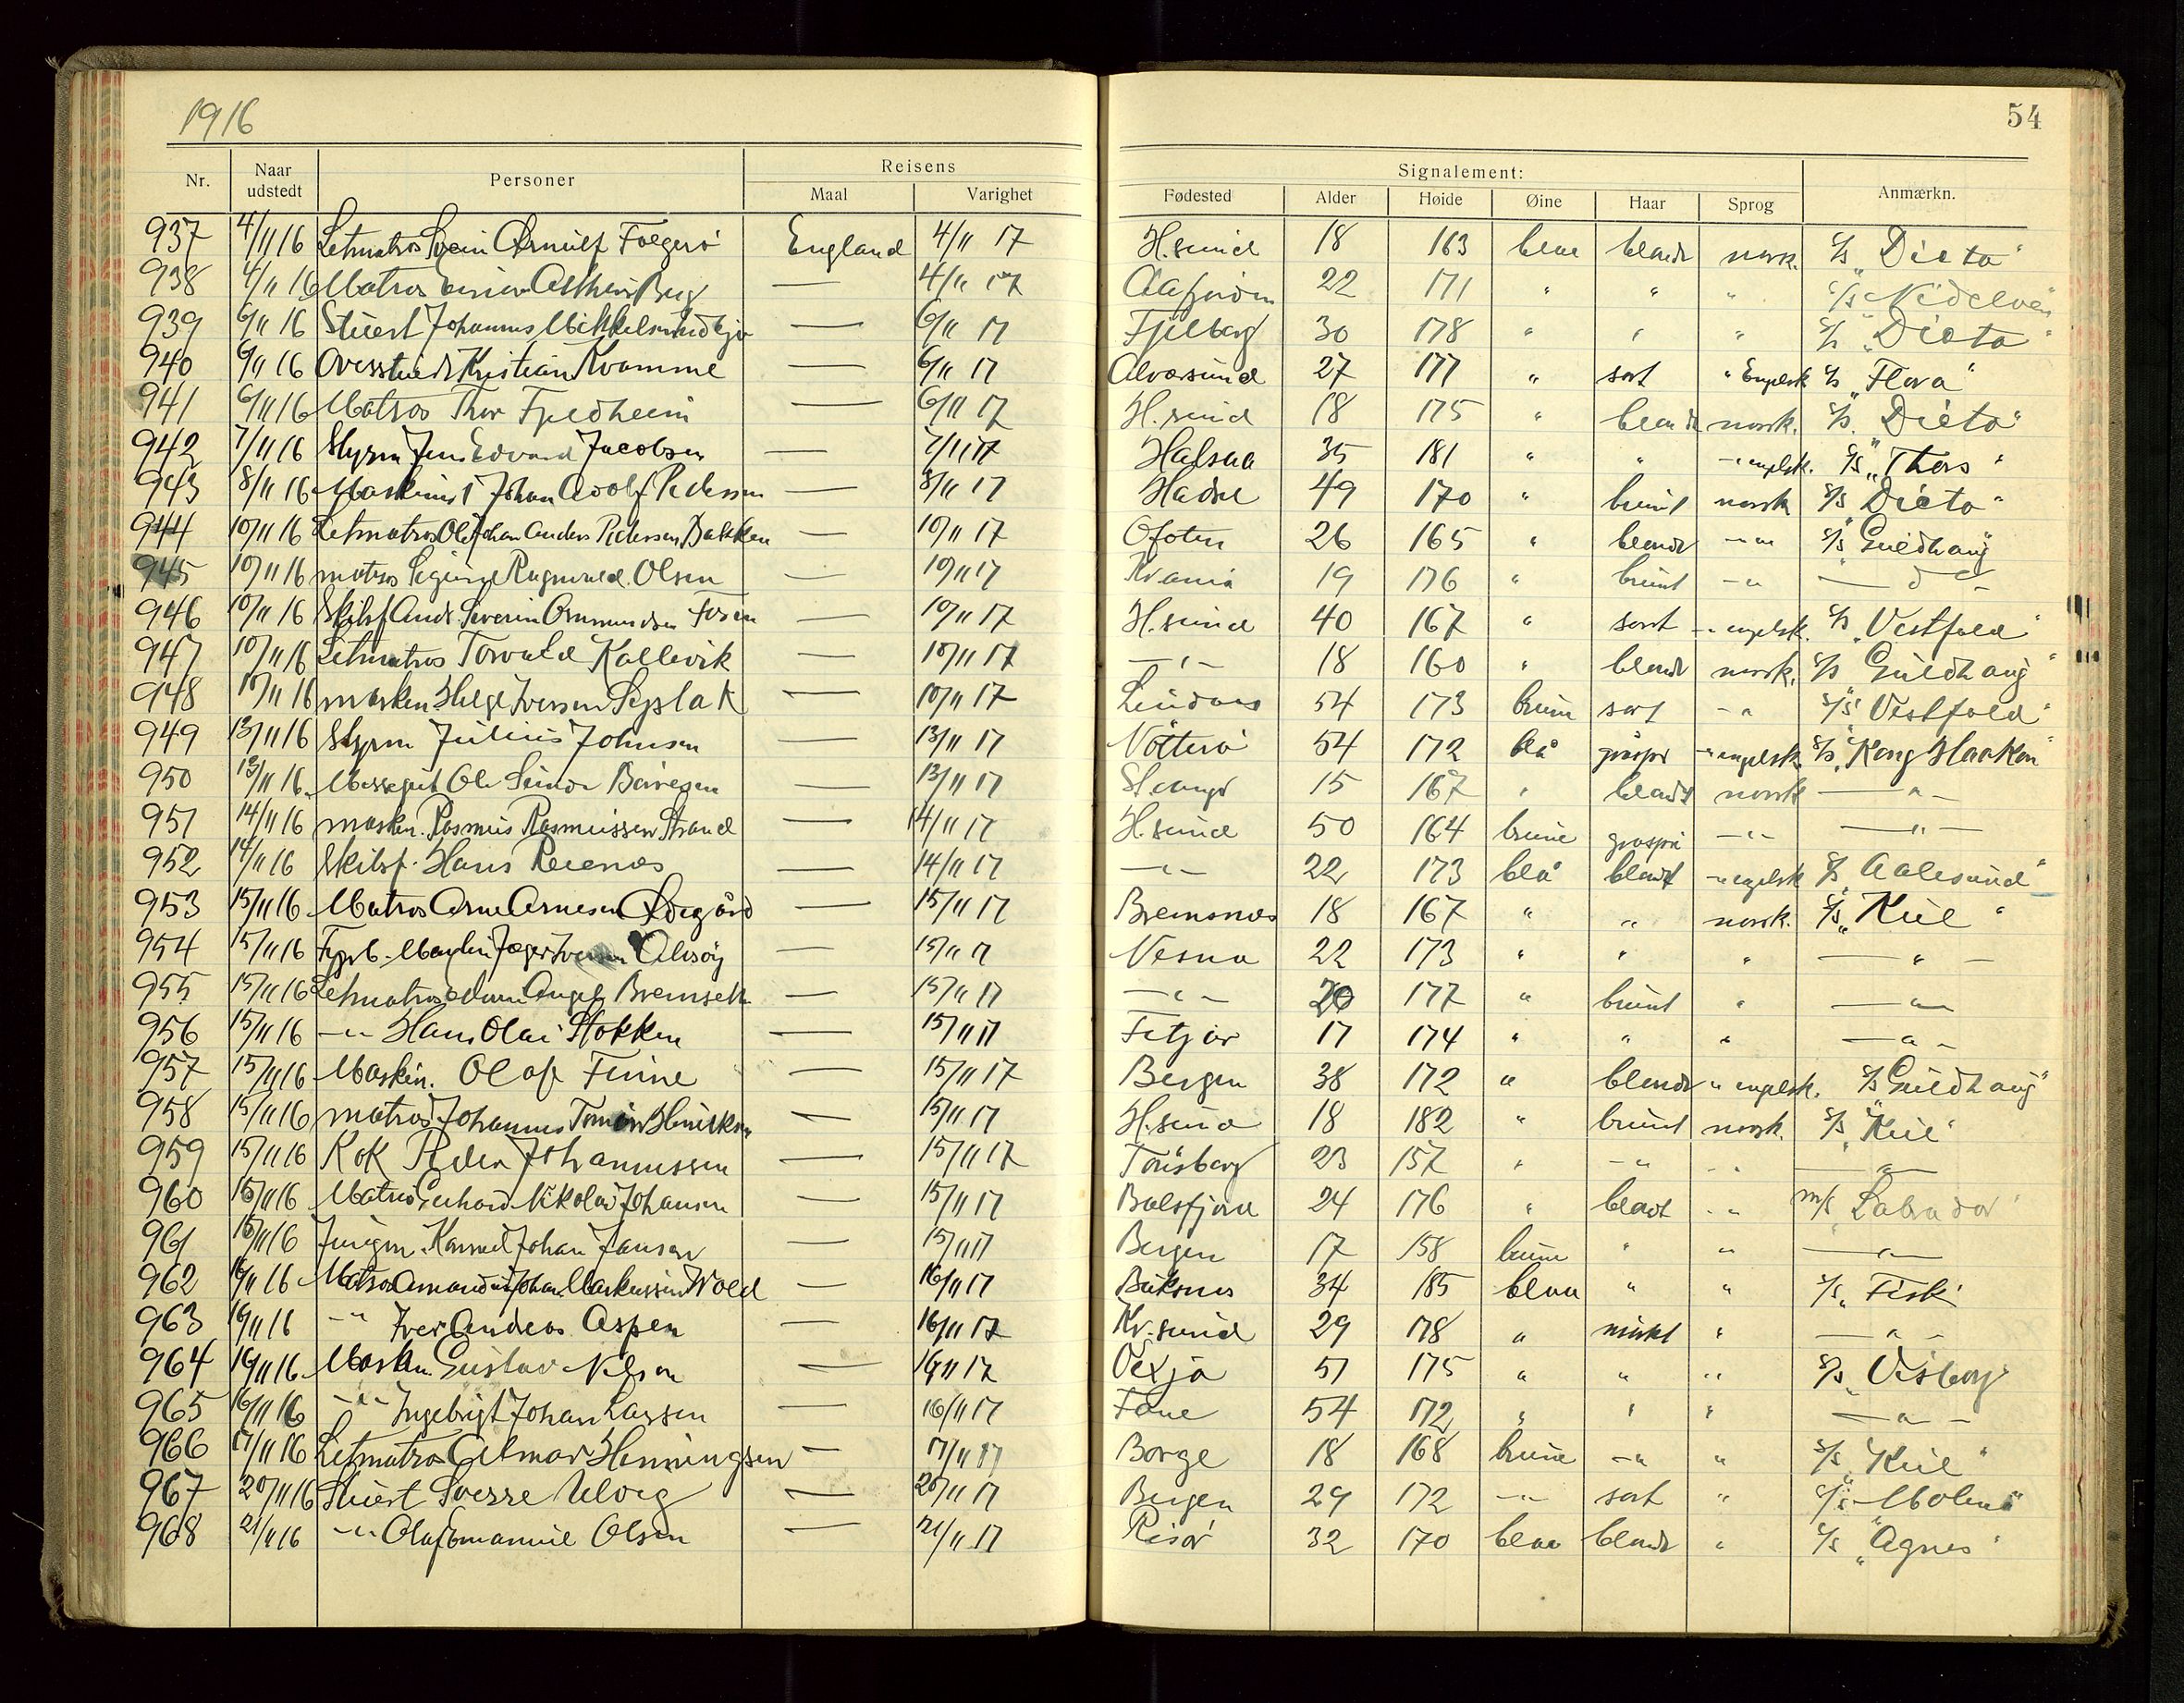 1916
54
Nr. Naar udstedt Personer Reisens Maal Varighet Signalement: Fødested Alder Høide Øine Haar Sprog Anmærkn.
937 4/11 16 Letmatros Svein Arnulf Folgerö England 4/11 17 H.sund 18 163 blaa blondt norsk. S/S „Dicto"
938 4/11 16 Matros Einar 4/11 17 Aafjorden 22 171 " " " S/S Nidelven
939 6/11 16 Stuert Johannes Mikkelsen — 6/11 17 Fjelberg 30 178 " " " S/S „Dicto"
940 6/11 16 Kristian Kvamme — 6/11 17 Alversund 27 177 " sort " Engelsk S/S „Flora"
941 6/11 16 Matros Thor Fjeldheim — 6/11 17 H.sund 18 175 " blondt norsk. S/S. Dicto"
942 7/11 16 Styrm Jens Edvard Jacobsen — 7/11 17 Halsaa 35 181 " " -" engelsk. S/S „Thors"
943 8/11 16 Maskinist Johan Adolf Pedersen — 8/11 17 Hadsel 49 170 " brunt norsk S/S Dicto"
944 10/11 16 Letmatros Ole Johan Anders Pedersen Bakken — 10/11 17 Ofoten 26 165 " blondt -"- S/S Guldhaug
945 10/11 16 matros Ragnvald Olsen — 10/11 17 Kr.ania 19 176 " brunt -"- — d o -
946 10/11 16 Skibsf And. Severin Fosen — 10/11 17 H.sund 40 167 " sort -" engelsk. S/S „Vestfold"
947 10/11 16 Letmatros Torvald Kallevik — 10/11 17 -"- 18 160 " blondt norsk. S/S Guldhaug"
948 10/11 16 masken. Helge Iversen — 10/11 17 Lindaas 54 173 brune sort -" S/S Vestfold"
949 13/11 16 Styrm Julius Johnsen — 13/11 17 Nötterö 54 172 blå -" engelsk. S/S „Kong Haakon"
950 13/11 16. Messegut Ole — 13/11 17 15 167 " blondt norsk —"-
951 14/11 16 masken. Rasmus Rasmussen Strand — 14/11 17 H.sund 50 164 brune -"- —"—
952 14/11 16 Skibsf. Hans — 14/11 17 -"- 22 173 blå blondt -" engelsk S/S Aalesund"
953 15/11 16 Matros Arne Arnesen — 15/11 17 Bremsnes 18 167 " " norsk. S/S „Kiel"
954 15/11 16 Fyrb. — 15/11 17 Nesna 22 173 " " " —"-
955 15/11 16 Letmatros — 15/11 17 -"- 20 177 " brunt " —"-
956 15/11 16 -"- Hans Olai Stokken — 15/11 17 Fitjar 17 174 " " " —"-
957 15/11 16 Maskin. Olaf Finne — 15/11 17 Bergen 38 172 " blondt " engelsk. S/S Guldhaug"
958 15/11 16 matros Johannes — 15/11 17 H.sund 18 182 " brunt norsk. S/S „Kiel"
959 15/11 16 Kok Peder Johannessen — 15/11 17 Tönsberg 23 157 " -"- -"- —"—
960 15/11 16 Matros Gerhard Nikolai Johansen — 15/11 17 Balsfjord 24 176 " blondt -"- m/s „Labrador"
961 15/11 16 Jungm. Johan Jansen — 15/11 17 Bergen 17 158 brune " " —"—
962 16/11 16 Matros Amandus Johan Markussen Wold — 16/11 17 Buksnes 34 185 blaa " " S/S „Fisk"
963 16/11 16 -"- Iver Andeas Aspen — 16/11 17 Kr.sund 29 178 " mörkt " —"-
964 16/11 16 Maskn. Gustav Nilsen — 16/11 17 Vexjö 51 175 " " " S/S „Visborg
965 16/11 16 -"- Ingebrigt Johan Larsen — 16/11 17 Fane 54 172 " " " —"-
966 17/11 16 Letmatros Henningsen — 17/11 17 Borge 18 168 brune -"- " S/S „Kiel"
967 20/11 16 Stuert Sverre — 20/11 17 Bergen 29 172 -"- sort " S/S
968 21/11 16 -"- Olaf Emanuel Olsen — 21/11 17 Risör 32 170 blaa blondt " S/S „Agnes"